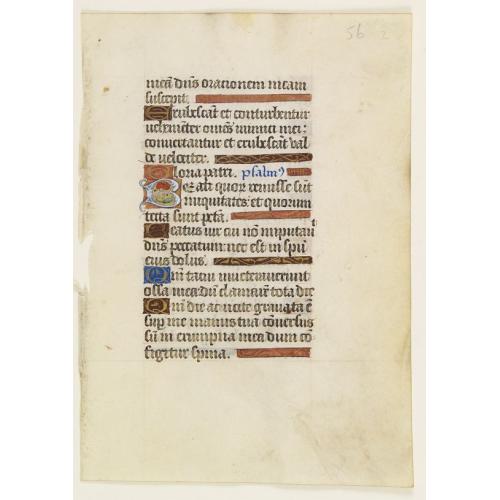 56 2
meā dn̄s orationem meam
suscepit.
Erubescāt et conturbentur
vehementer omēs inimici mei:
convertantur et erubescāt val
de velociter.
Gloria patri. psalmꝰ
Beati quorꝝ remisse sūt
iniquitates: et quorum
tecta sunt pctā.
Beatus vir cui nō imputavit
dn̄s peccatum: nec est in spū
eius dolus.
Qm̄ tacui inveteraverunt
ossa mea: dū clamarē tota die
Qm̄ die ac nocte gravata ē
sup me manus tua cōversus
sū in erumpna mea dum cō
figitur spina.